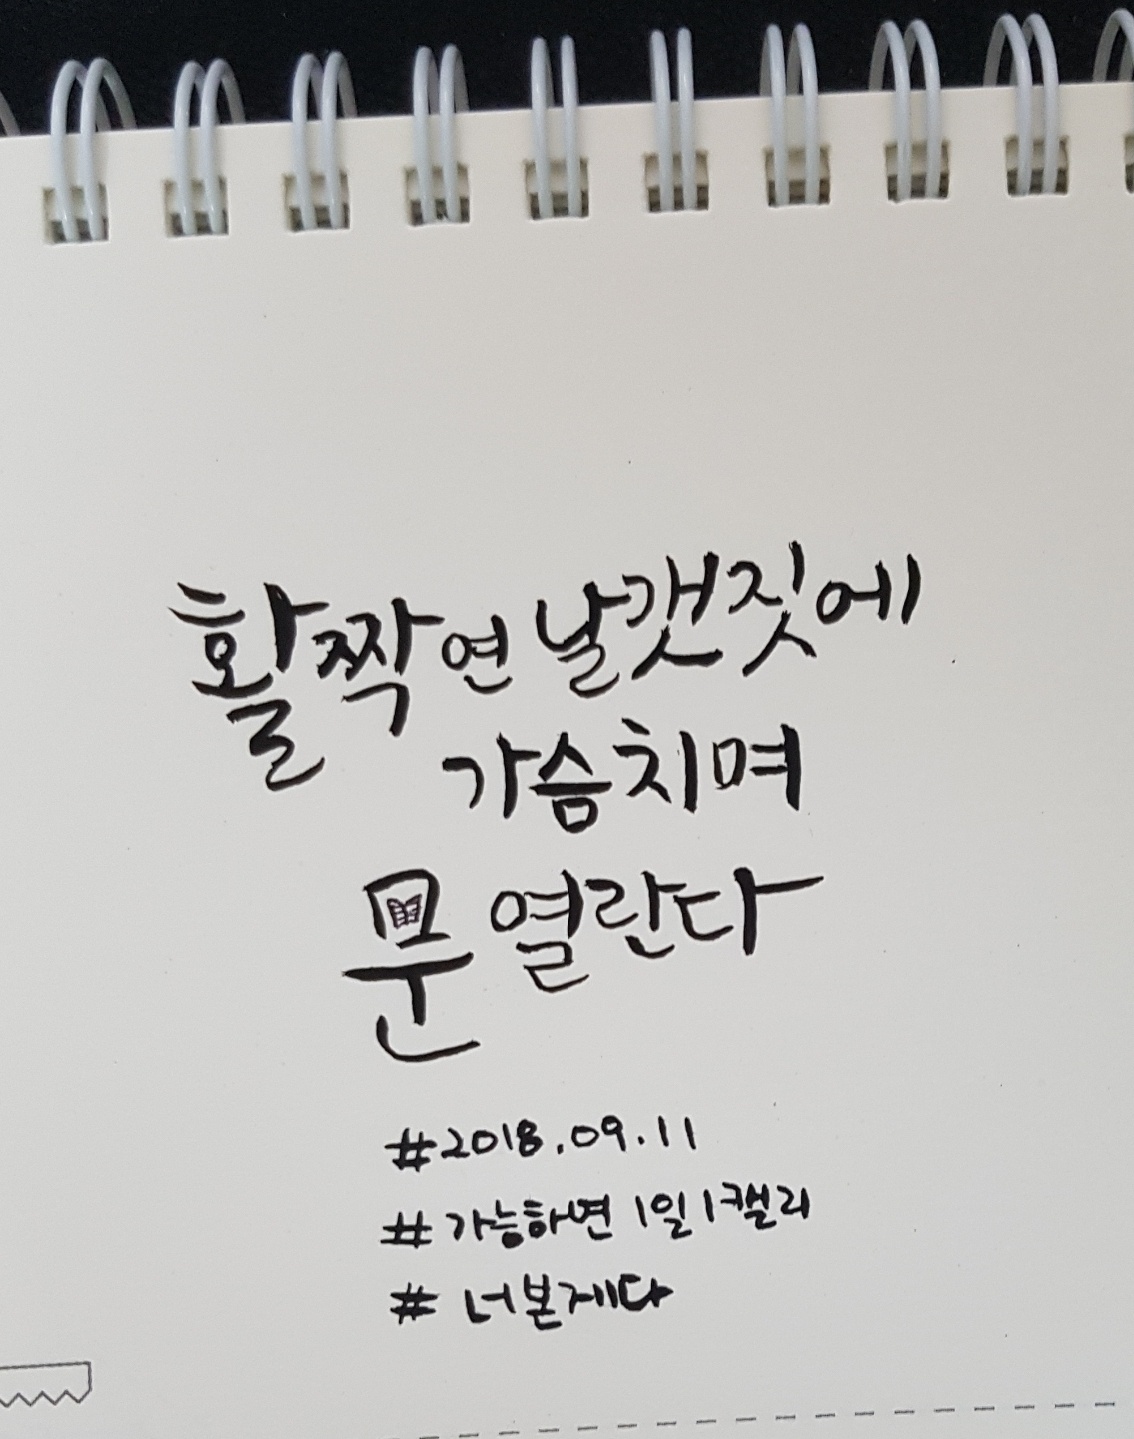 활짝 연 날갯짓에
가슴치며
문 열린다
#2018.09.11
#가능하면 1일1캘리
#너본제다